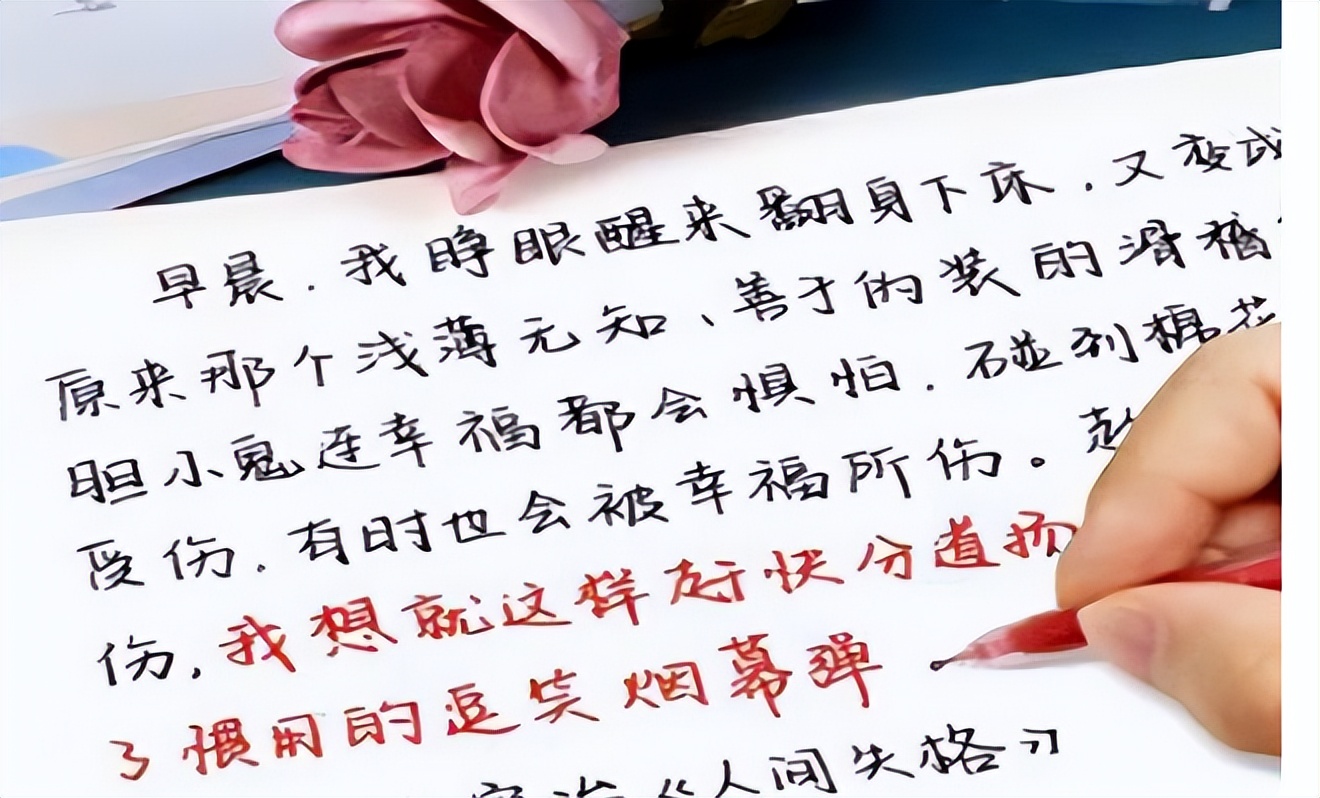 早晨，我睁眼醒来翻身下床，又变成
原来那个浅薄无知、善于伪装的滑稽
胆小鬼连幸福都会惧怕，碰到棉花
受伤，有时也会被幸福所伤。趁
伤，我想就这样赶快分道扬
了惯用的逗笑烟幕弹
宰治《人间失格》